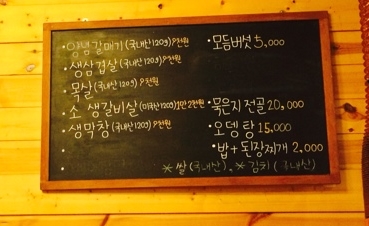 · 양념갈매기 (국내산 120g) 8천원
· 생삼겹살 (국내산 120g) 8천원
· 목살 (국내산 120g) 8천원
· 소 생갈비살 (미국산 120g) 1만 2천원
· 생막창 (국내산 120g) 8천원
· 모듬버섯 5,000
· 묵은지 전골 20,000
· 오뎅탕 15,000
· 밥 + 된장찌개 2,000
* 쌀 (국내산), * 김치 (국내산)